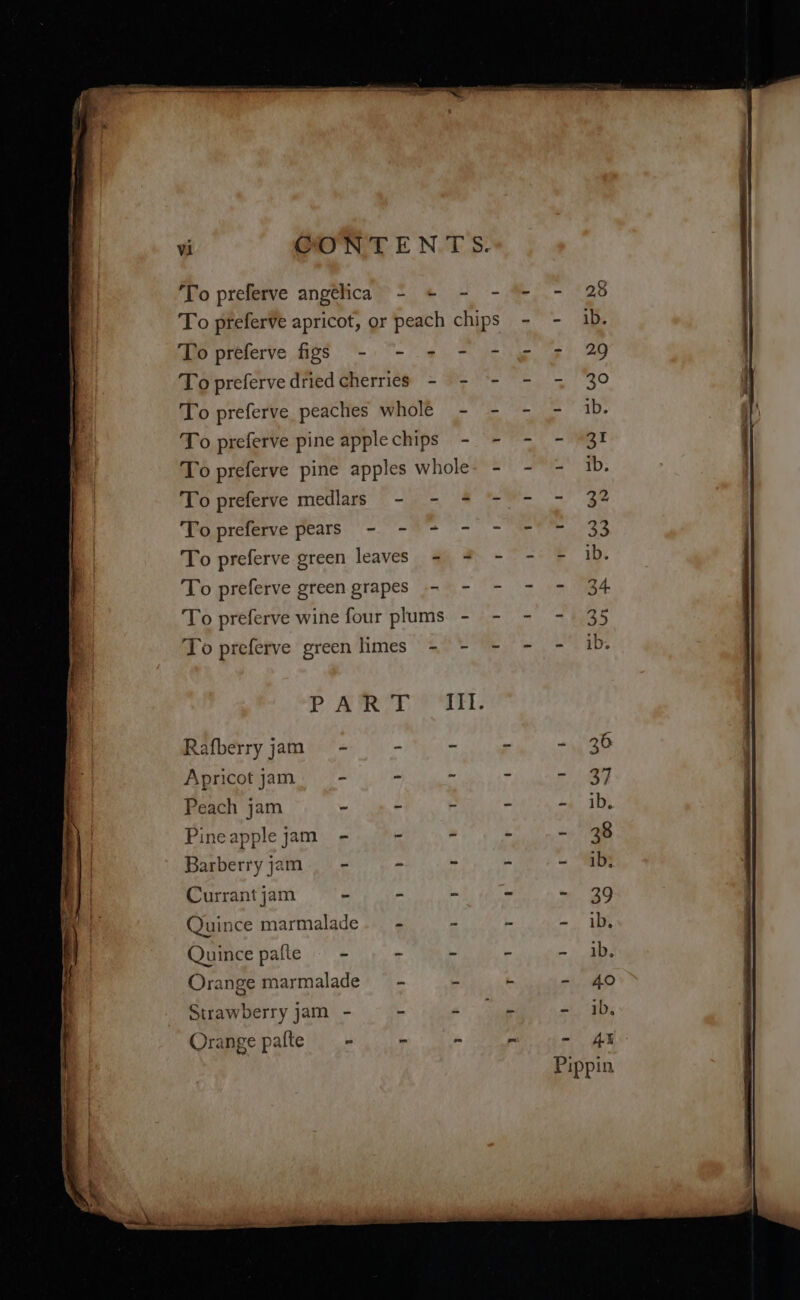 vi CONTENTS.
To preſerve angelica - - - - - - 28
To preſerve apricot, or peach chips - - ib.
To preſerve figs - - - - - - - 29
To preſerve dried cherries - - - - - 30
To preſerve peaches whole - - - - ib.
To preſerve pine apple chips - - - - 31
To preſerve pine apples whole - - - ib.
To preſerve medlars - - - - - - 32
To preſerve pears - - - - - - - 33
To preſerve green leaves - - - - - ib.
To preſerve green grapes - - - - - 34
To preſerve wine four plums - - - - 35
To preſerve green limes - - - - - ib.
PART III.
Raſberry jam - - - - - 36
Apricot jam - - - - - 37
Peach jam - - - - - ib.
Pine apple jam - - - - - 38
Barberry jam - - - - - ib.
Currant jam - - - - - 39
Quince marmalade - - - - ib.
Quince paſte - - - - - ib.
Orange marmalade - - - - 40
Strawberry jam - - - - - ib.
Orange paſte - - - - - 41
Pippin